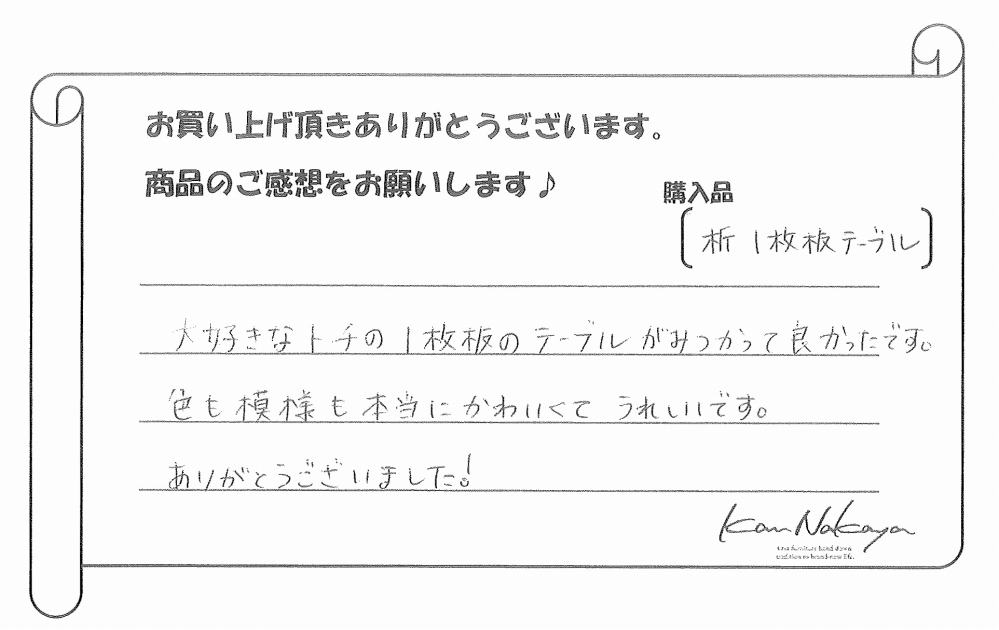 お買い上げ頂きありがとうございます。
商品のご感想をお願いします♪
購入品
析 1枚板テーブル
大好きなトチの1枚板のテーブルがみつかって良かったです。
色も模様も本当にかわいくて うれしいです。
ありがとうございました!
Kan Nakaya
fine furniture hand down
tradition to brand-new life.